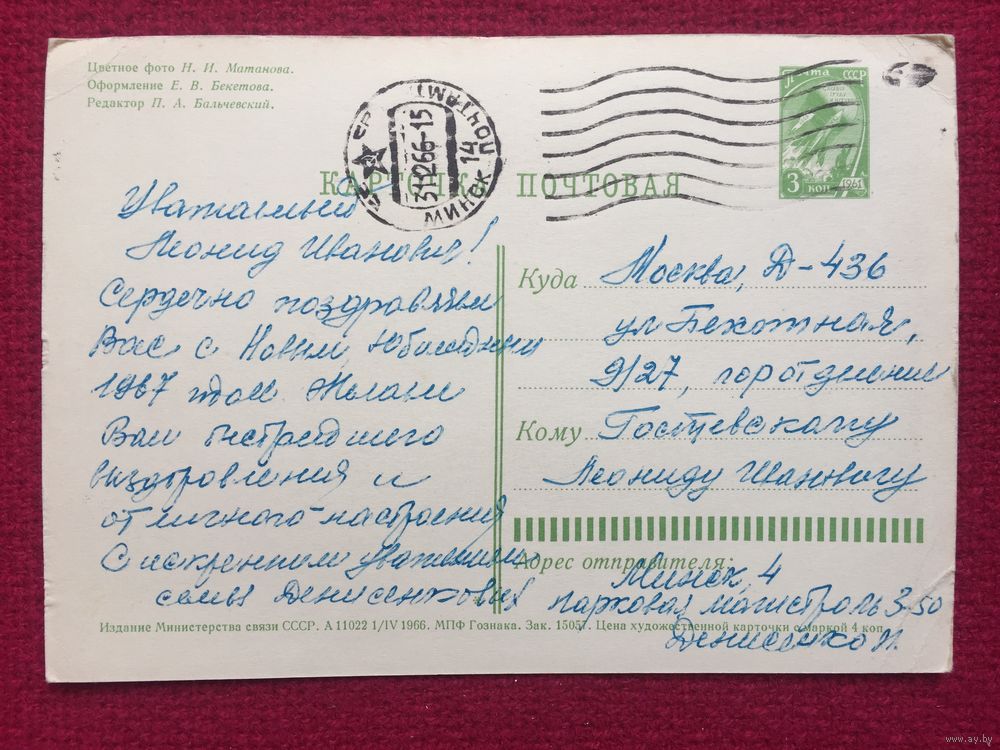 Цветное фото Н. И. Матанова.
Оформление Е. В. Бекетова.
Редактор П. А. Бальчевский.
МИНСК 14 ПОЧТАМТ
31 12 66-15
почта СССР
3 коп
1961
КАРТОЧКА ПОЧТОВАЯ
Уважаемый
Леонид Иванович!
Сердечно поздравляем
Вас с Новым Юбилейным
1967 годом Желаем
Вам быстрейшего
выздоровления и
отличного настроения
С искренним уважением
семья Денисенковых
Куда Москва, Д-436
ул Пехотная,
9/27, гор отделение
Кому Гостевскому
Леониду Ивановичу
Адрес отправителя:
Минск, 4
парковая магистраль 3-50
Денисенко
Издание Министерства связи СССР. А 11022 1/IV 1966. МПФ Гознака. Зак. 15057. Цена художественной карточки с маркой 4 коп.
www.ay.by